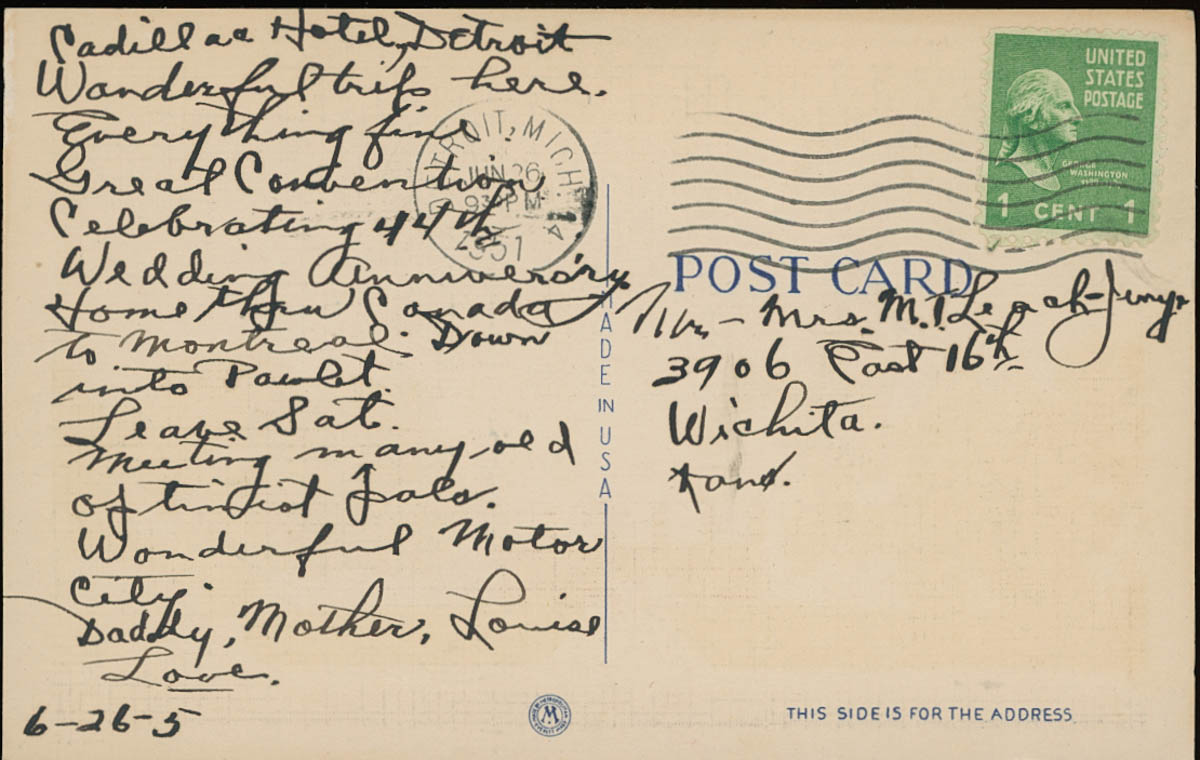 Cadillac Hotel, Detroit
Wonderful trip here.
Everything fine
Great Convention
Celebrating 44th
Wedding Anniversary
Home thru Canada
to Montreal. Down
into Pawlet.
Leave Sat.
Meeting many old
optimist pals.
Wonderful Motor
City.
Daddy, Mother, Louise
Love.
6-26-5
DETROIT, MICH.
JUN 26
9 30 PM
1951
MADE IN USA
UNITED
STATES
POSTAGE
GEORGE
WASHINGTON
1 CENT 1
POST CARD
Mr. - Mrs. M.T. Leach -
3906 East 16th
Wichita.
Kans.
M
THIS SIDE IS FOR THE ADDRESS